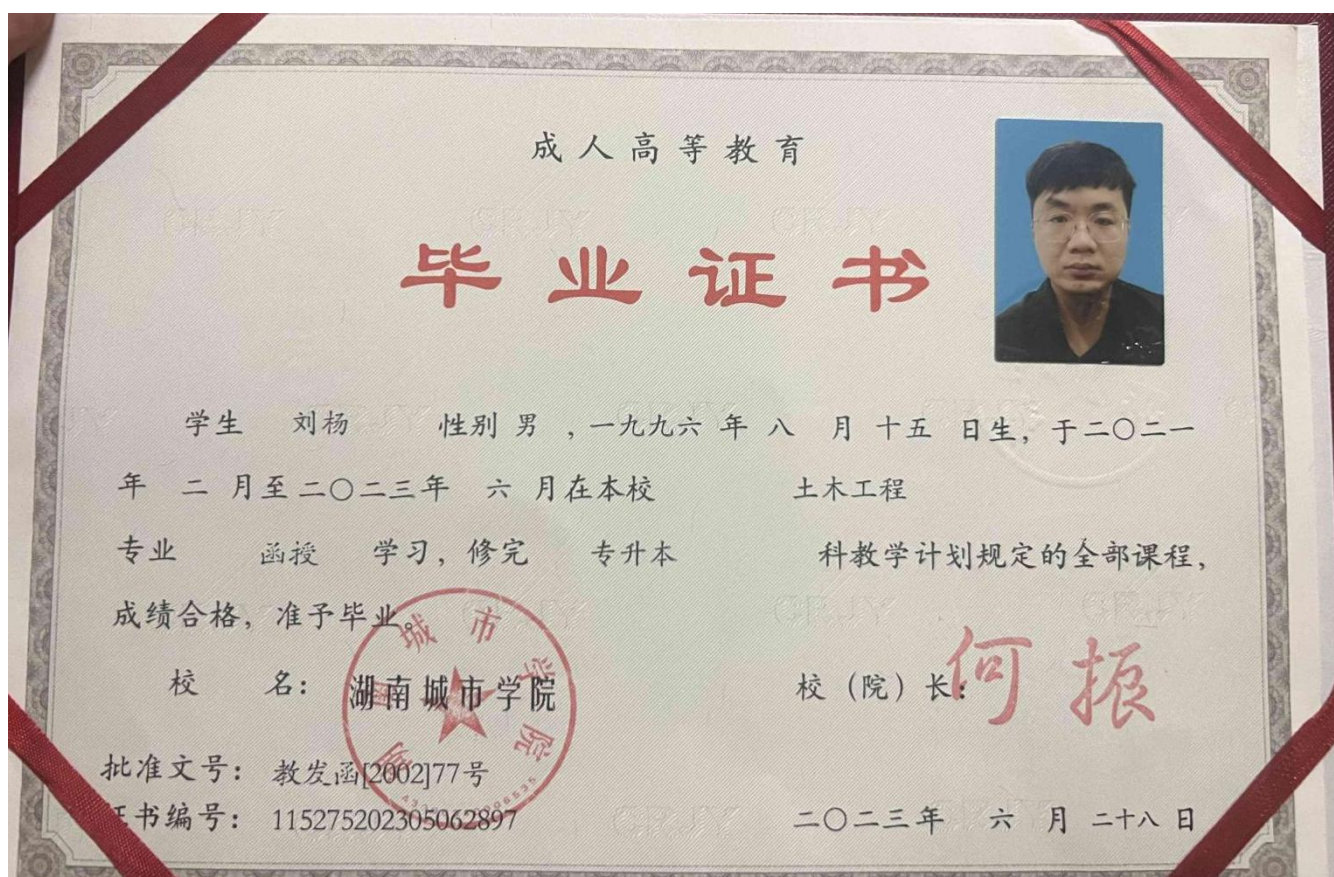 成人高等教育
毕业证书
学生 刘杨 性别 男 , 一九九六 年 八 月 十五 日生, 于二〇二一
年 二 月至 二〇二三年 六 月在本校 土木工程
专业 函授 学习, 修完 专升本 科教学计划规定的全部课程,
成绩合格, 准予毕业。
校 名: 湖南城市学院 校(院)长: 何振
湖南城市学院
批准文号: 教发函[2002]77号
证书编号: 115275202305062897 二〇二三年 六 月 二十八 日
CRJY